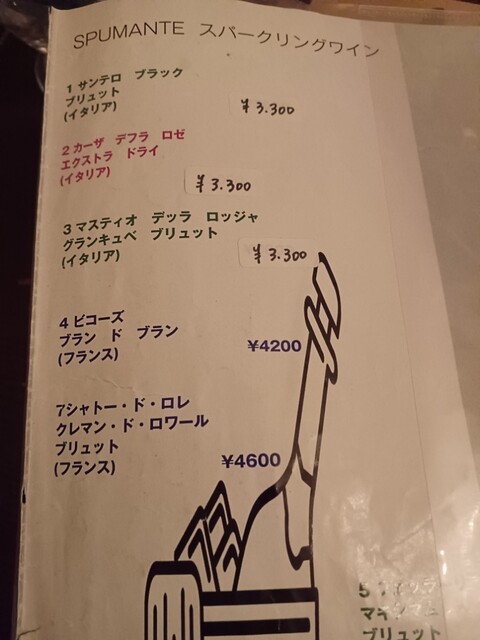 SPUMANTE スパークリングワイン
1 サンテロ ブラック
ブリュット
(イタリア)
¥3.300
2 カーザ デフラ ロゼ
エクストラ ドライ
(イタリア)
¥3.300
3 マスティオ デッラ ロッジャ
グランキュベ ブリュット
(イタリア)
¥3.300
4 ビコーズ
ブラン ド ブラン
(フランス)
¥4200
7シャトー・ド・ロレ
クレマン・ド・ロワール
ブリュット
(フランス)
¥4600
5
ブリュット